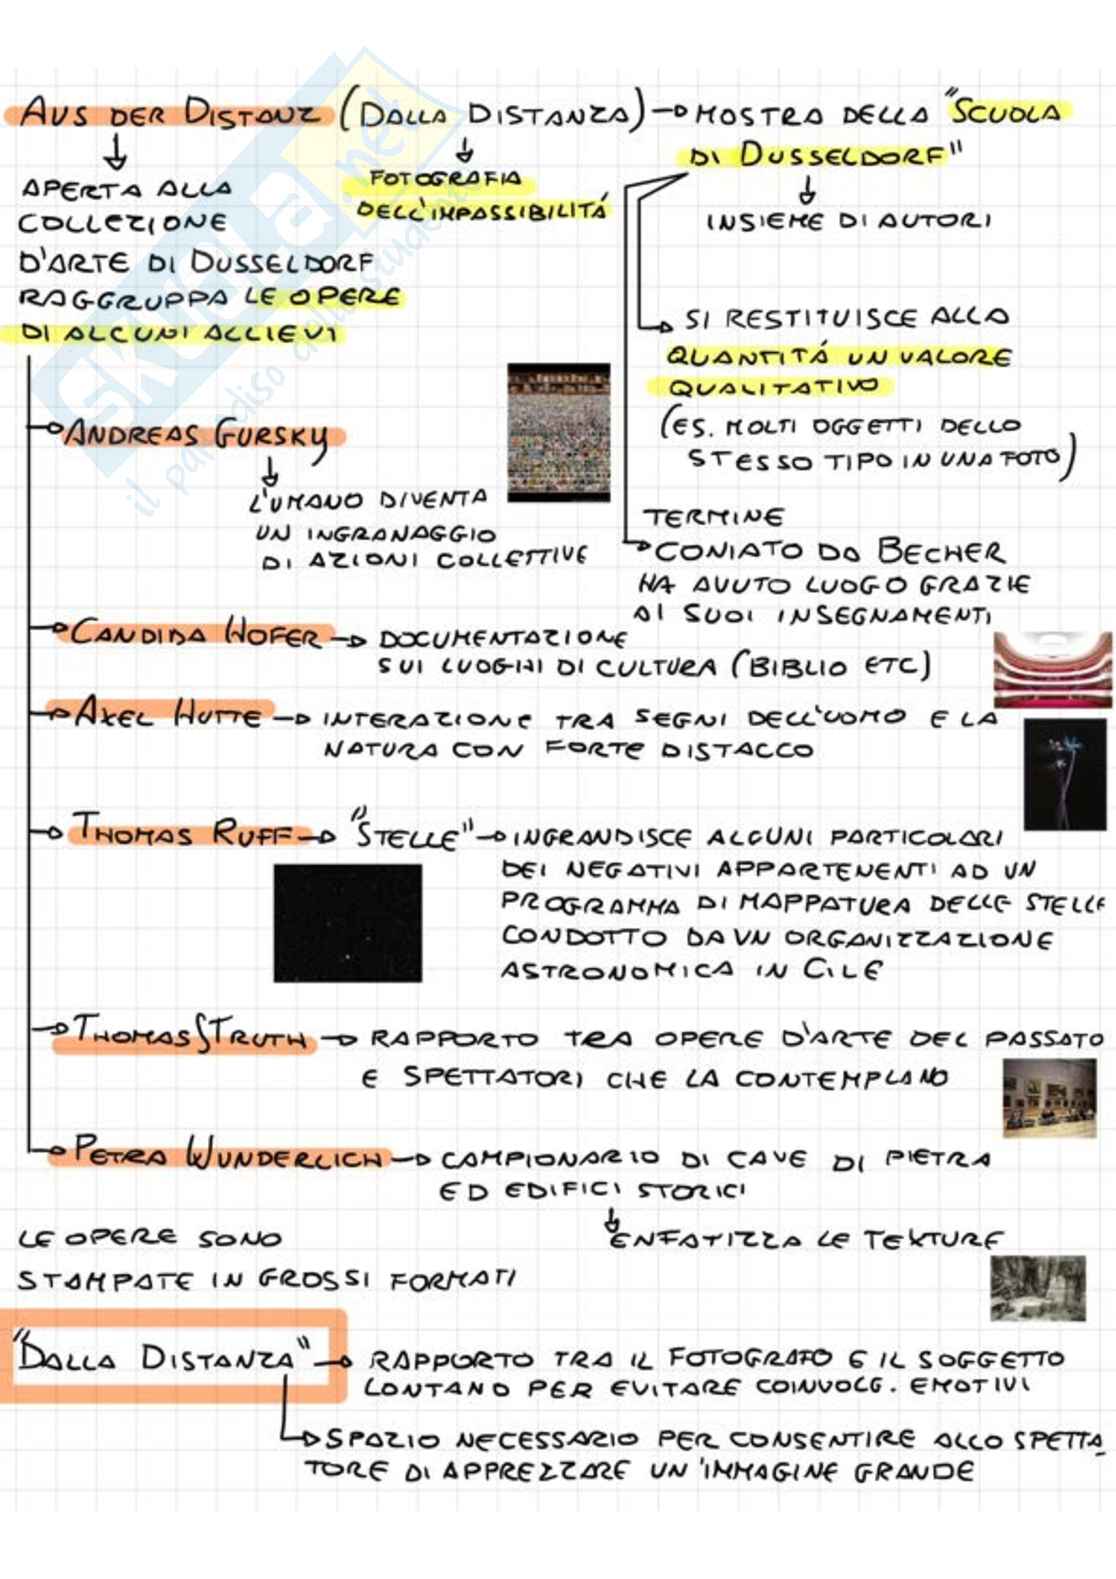 AUS DER DISTANZ (DALLA DISTANZA) → MOSTRA DELLA "SCUOLA
DI DUSSELDORF"
INSIEME DI AUTORI
FOTOGRAFIA
DELL'IMPASSIBILITÁ
APERTA ALLA
COLLEZIONE
D'ARTE DI DUSSELDORF
RAGGRUPPA LE OPERE
DI ALCUNI ALLIEVI
SI RESTITUISCE ALLA
QUANTITÁ UN VALORE
QUALITATIVO
(ES. MOLTI OGGETTI DELLO
STESSO TIPO IN UNA FOTO)
TERMINE
CONIATO DA BECHER
HA AVUTO LUOGO GRAZIE
AI SUOI INSEGNAMENTI
ANDREAS GURSKY
L'UMANO DIVENTA
UN INGRANAGGIO
DI AZIONI COLLETTIVE
CANDIDA HOFER → DOCUMENTAZIONE
SUI LUOGHI DI CULTURA (BIBLIO ETC)
AXEL HUTTE → INTERAZIONE TRA SEGNI DELL'UOMO E LA
NATURA CON FORTE DISTACCO
THOMAS RUFF → "STELLE" → INGRANDISCE ALCUNI PARTICOLARI
DEI NEGATIVI APPARTENENTI AD UN
PROGRAMMA DI MAPPATURA DELLE STELLE
CONDOTTO DA UN ORGANIZZAZIONE
ASTRONOMICA IN CILE
THOMAS STRUTH → RAPPORTO TRA OPERE D'ARTE DEL PASSATO
E SPETTATORI CHE LA CONTEMPLANO
PETRA WUNDERLICH → CAMPIONARIO DI CAVE DI PIETRA
ED EDIFICI STORICI
ENFATIZZA LE TEXTURE
LE OPERE SONO
STAMPATE IN GROSSI FORMATI
"DALLA DISTANZA" → RAPPORTO TRA IL FOTOGRAFO E IL SOGGETTO
LONTANO PER EVITARE COINVOLG. EMOTIVI
SPAZIO NECESSARIO PER CONSENTIRE ALLO SPETTA-
TORE DI APPREZZARE UN'IMMAGINE GRANDE
skuola.net
il paradiso dello studente